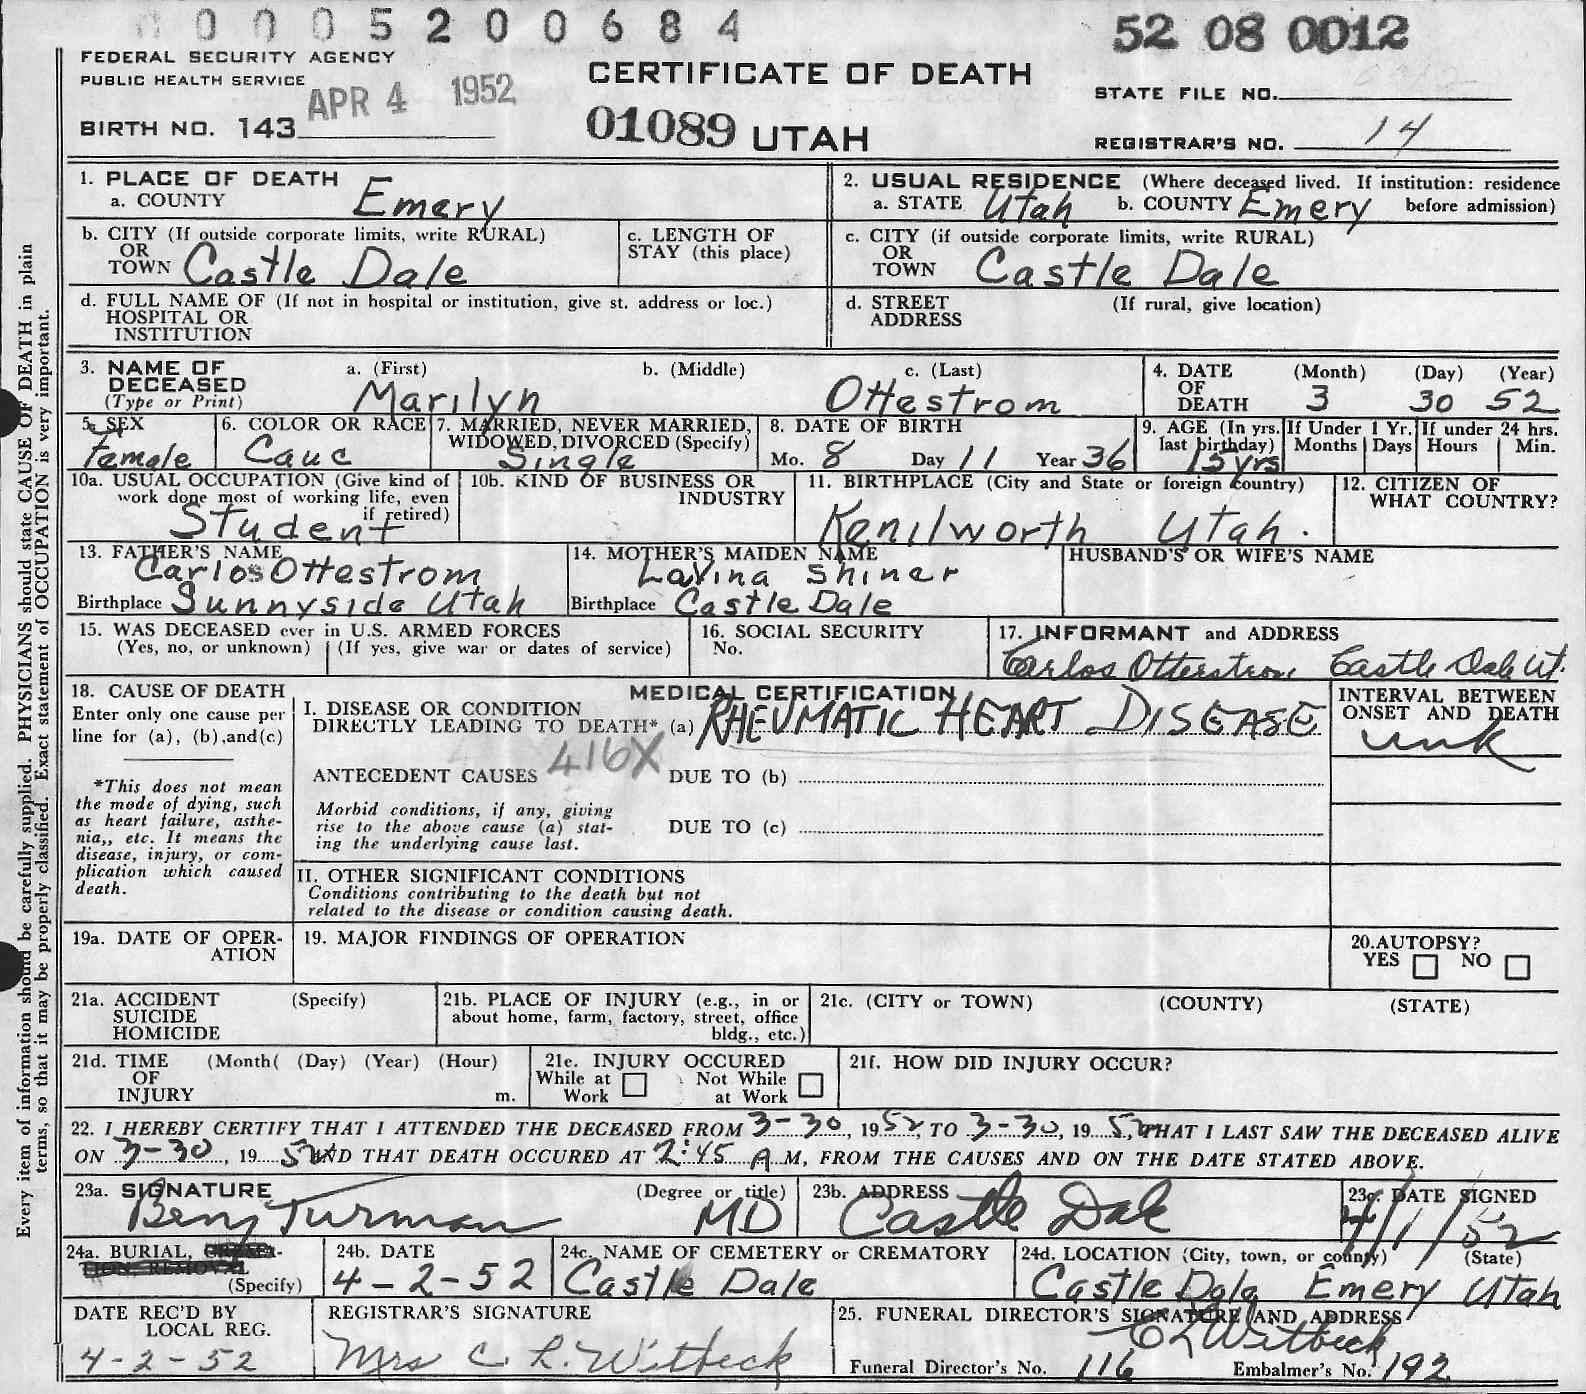 0005200684
52 08 0012
FEDERAL SECURITY AGENCY
PUBLIC HEALTH SERVICE
APR 4 1952
CERTIFICATE OF DEATH
STATE FILE NO.
BIRTH NO. 143
01089 UTAH
REGISTRAR'S NO. 14
1. PLACE OF DEATH
a. COUNTY Emery
2. USUAL RESIDENCE (Where deceased lived. If institution: residence
a. STATE Utah b. COUNTY Emery before admission)
b. CITY (If outside corporate limits, write RURAL)
OR
TOWN Castle Dale
c. LENGTH OF
STAY (this place)
c. CITY (if outside corporate limits, write RURAL)
OR
TOWN Castle Dale
d. FULL NAME OF (If not in hospital or institution, give st. address or loc.)
HOSPITAL OR
INSTITUTION
d. STREET (If rural, give location)
ADDRESS
3. NAME OF
DECEASED
(Type or Print)
a. (First) b. (Middle) c. (Last)
Marilyn Ottestrom
4. DATE (Month) (Day) (Year)
OF
DEATH 3 30 52
5. SEX
Female
6. COLOR OR RACE
Cauc
7. MARRIED, NEVER MARRIED,
WIDOWED, DIVORCED (Specify)
Single
8. DATE OF BIRTH
Mo. 8 Day 11 Year 36
9. AGE (In yrs.
last birthday)
15 yrs
If Under 1 Yr.
Months Days
If under 24 hrs.
Hours Min.
10a. USUAL OCCUPATION (Give kind of
work done most of working life, even
if retired)
Student
10b. KIND OF BUSINESS OR
INDUSTRY
11. BIRTHPLACE (City and State or foreign country)
Kenilworth Utah.
12. CITIZEN OF
WHAT COUNTRY?
13. FATHER'S NAME
Carlos Ottestrom
Birthplace Sunnyside Utah
14. MOTHER'S MAIDEN NAME
LaVina Shiner
Birthplace Castle Dale
HUSBAND'S OR WIFE'S NAME
15. WAS DECEASED ever in U.S. ARMED FORCES
(Yes, no, or unknown) (If yes, give war or dates of service)
16. SOCIAL SECURITY
No.
17. INFORMANT and ADDRESS
Carlos Otterstrom Castle Dale Ut.
18. CAUSE OF DEATH
Enter only one cause per
line for (a), (b),and(c)
*This does not mean
the mode of dying, such
as heart failure, asthe-
nia,, etc. It means the
disease, injury, or com-
plication which caused
death.
MEDICAL CERTIFICATION
I. DISEASE OR CONDITION
DIRECTLY LEADING TO DEATH* (a) RHEUMATIC HEART DISEASE
416X
ANTECEDENT CAUSES DUE TO (b)
Morbid conditions, if any, giving
rise to the above cause (a) stat-
ing the underlying cause last.
DUE TO (c)
INTERVAL BETWEEN
ONSET AND DEATH
unk
II. OTHER SIGNIFICANT CONDITIONS
Conditions contributing to the death but not
related to the disease or condition causing death.
19a. DATE OF OPER-
ATION
19. MAJOR FINDINGS OF OPERATION
20.AUTOPSY?
YES NO
21a. ACCIDENT (Specify)
SUICIDE
HOMICIDE
21b. PLACE OF INJURY (e.g., in or
about home, farm, factory, street, office
bldg., etc.)
21c. (CITY or TOWN) (COUNTY) (STATE)
21d. TIME (Month( (Day) (Year) (Hour)
OF
INJURY m.
21e. INJURY OCCURED
While at Not While
Work at Work
21f. HOW DID INJURY OCCUR?
22. I HEREBY CERTIFY THAT I ATTENDED THE DECEASED FROM 3-30, 1952, TO 3-30, 1952, THAT I LAST SAW THE DECEASED ALIVE
ON 3-30, 1952 AND THAT DEATH OCCURED AT 2:45 A M, FROM THE CAUSES AND ON THE DATE STATED ABOVE.
23a. SIGNATURE (Degree or title)
Benj Turman MD
23b. ADDRESS
Castle Dale
23c. DATE SIGNED
4/1/52
24a. BURIAL,
(Specify)
24b. DATE
4-2-52
24c. NAME OF CEMETERY or CREMATORY
Castle Dale
24d. LOCATION (City, town, or county) (State)
Castle Dale Emery Utah
DATE REC'D BY
LOCAL REG.
4-2-52
REGISTRAR'S SIGNATURE
Mrs C. L. Witbeck
25. FUNERAL DIRECTOR'S SIGNATURE AND ADDRESS
C L Witbeck
Funeral Director's No. 116 Embalmer's No. 192
Every item of information should be carefully supplied. PHYSICIANS should state CAUSE OF DEATH in plain
terms, so that it may be properly classified. Exact statement of OCCUPATION is very important.